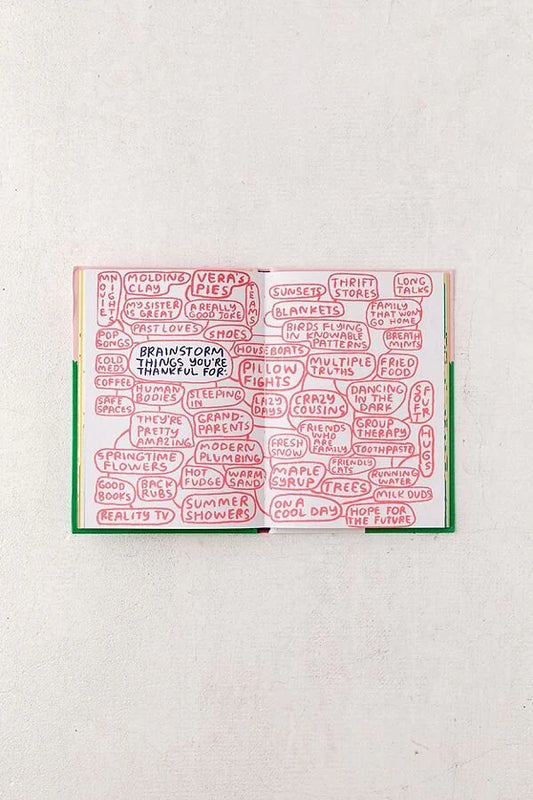 MOVIE NIGHTS
MOLDING
CLAY
VERA'S
PIES
TEAMS
MY SISTER
IS GREAT
A REALLY
GOOD JOKE
POP
SONGS
PAST LOVES
SHOES
BRAINSTORM
THINGS YOU'RE
THANKFUL FOR:
HOUSEBOATS
COLD
MEDS
COFFEE
HUMAN
BODIES
SLEEPING
IN
PILLOW
FIGHTS
SAFE
SPACES
THEY'RE
PRETTY
AMAZING
GRAND-
PARENTS
LAZY
DAYS
SPRINGTIME
FLOWERS
MODERN
PLUMBING
GOOD
BOOKS
BACK
RUBS
HOT
FUDGE
WARM
SAND
REALITY TV
SUMMER
SHOWERS
SUNSETS
THRIFT
STORES
LONG
TALKS
BLANKETS
FAMILY
THAT WON'T
GO HOME
BIRDS FLYING
IN KNOWABLE
PATTERNS
BREATH
MINTS
MULTIPLE
TRUTHS
FRIED
FOOD
CRAZY
COUSINS
DANCING
IN THE
DARK
SOFT FUR
FRIENDS
WHO
ARE
FAMILY
GROUP
THERAPY
HUGS
FRESH
SNOW
TOOTHPASTE
FRIENDLY
CATS
MAPLE
SYRUP
TREES
RUNNING
WATER
MILK DUDS
ON A
COOL DAY
HOPE FOR
THE FUTURE